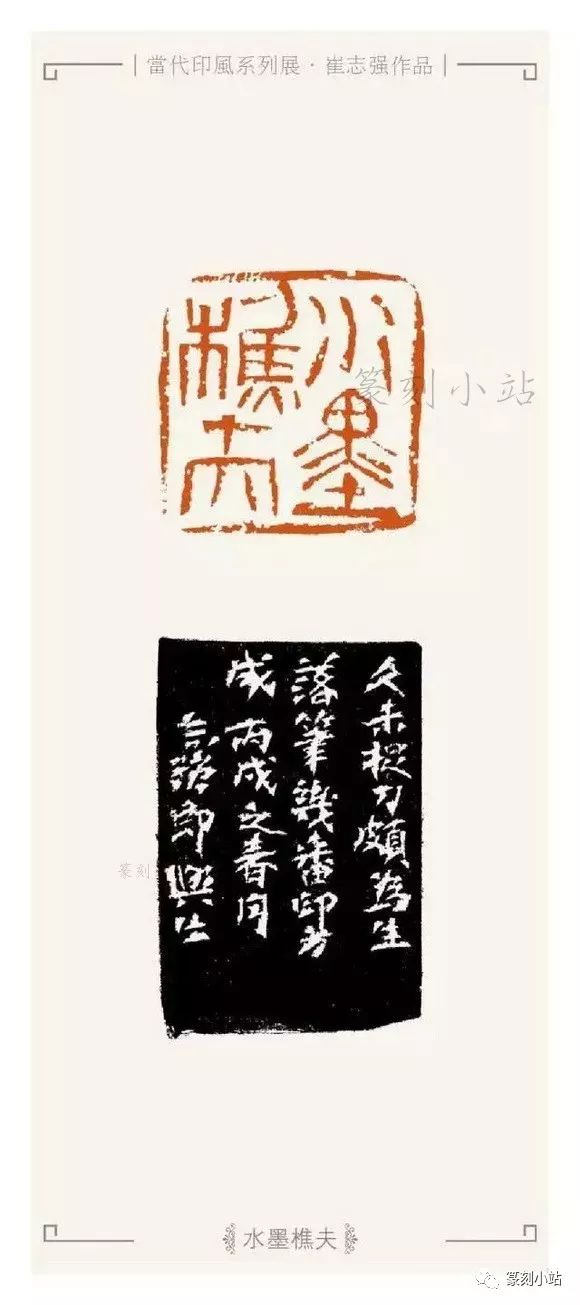 當代印風系列展·崔志强作品
水墨
樵夫
篆刻小站
久未捉刀頗為生
落筆幾番印方
成 丙戌之春月
志强即興
篆刻
水墨樵夫
篆刻小站